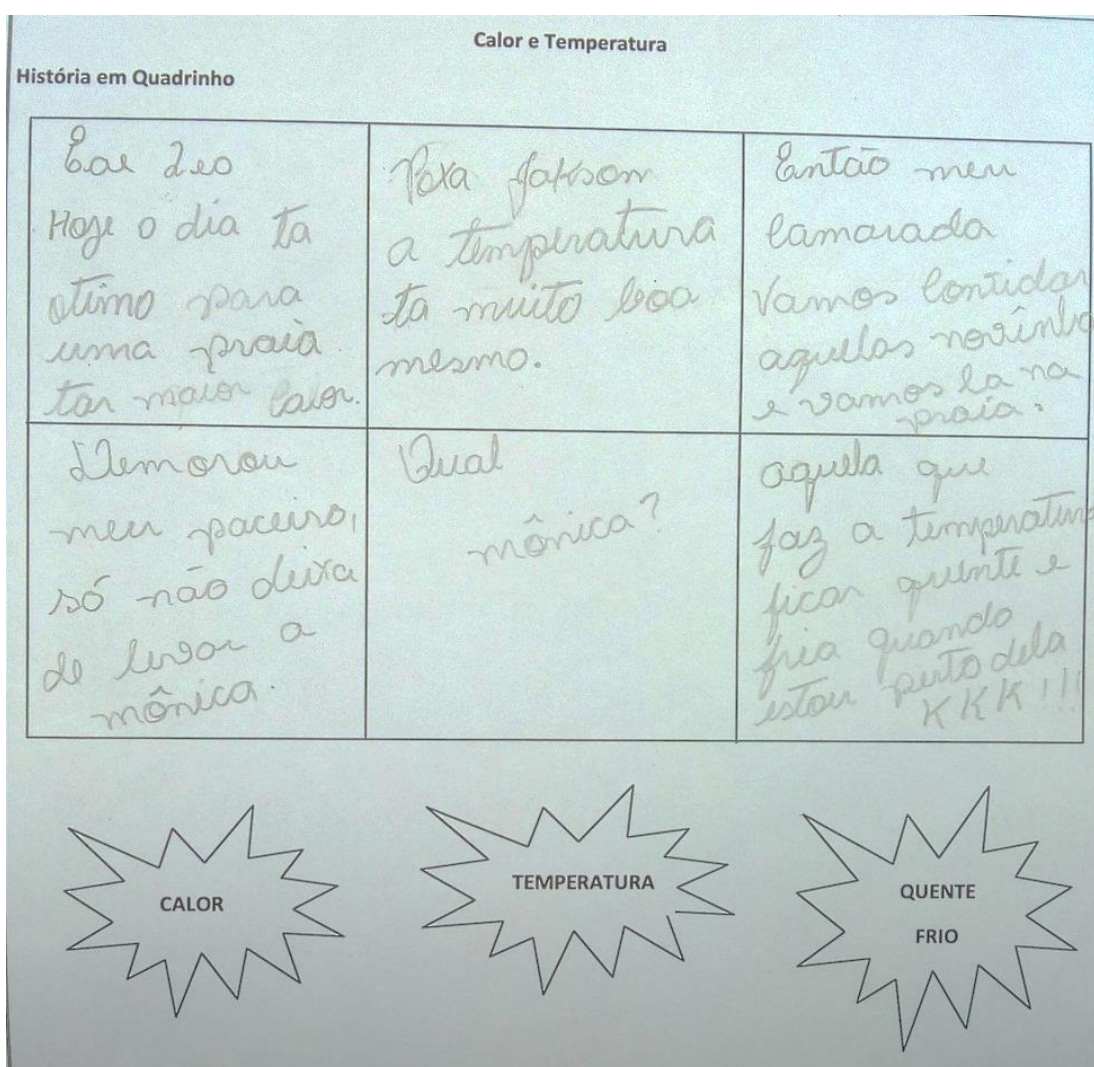 Calor e Temperatura
História em Quadrinho
Eae Leo
Hoje o dia ta
otimo para
uma praia
tar maior calor.
Poxa Jakson
a temperatura
ta muito boa
mesmo.
Então meu
camarada
Vamos Convidar
aquelas novinha
e vamos la na
praia.
Demorou
meu paceiro,
só não deixa
de levar a
mônica.
Qual
mônica?
aquela que
faz a temperatura
ficar quente e
fria quando
estou perto dela
KKK!!!
CALOR
TEMPERATURA
QUENTE
FRIO